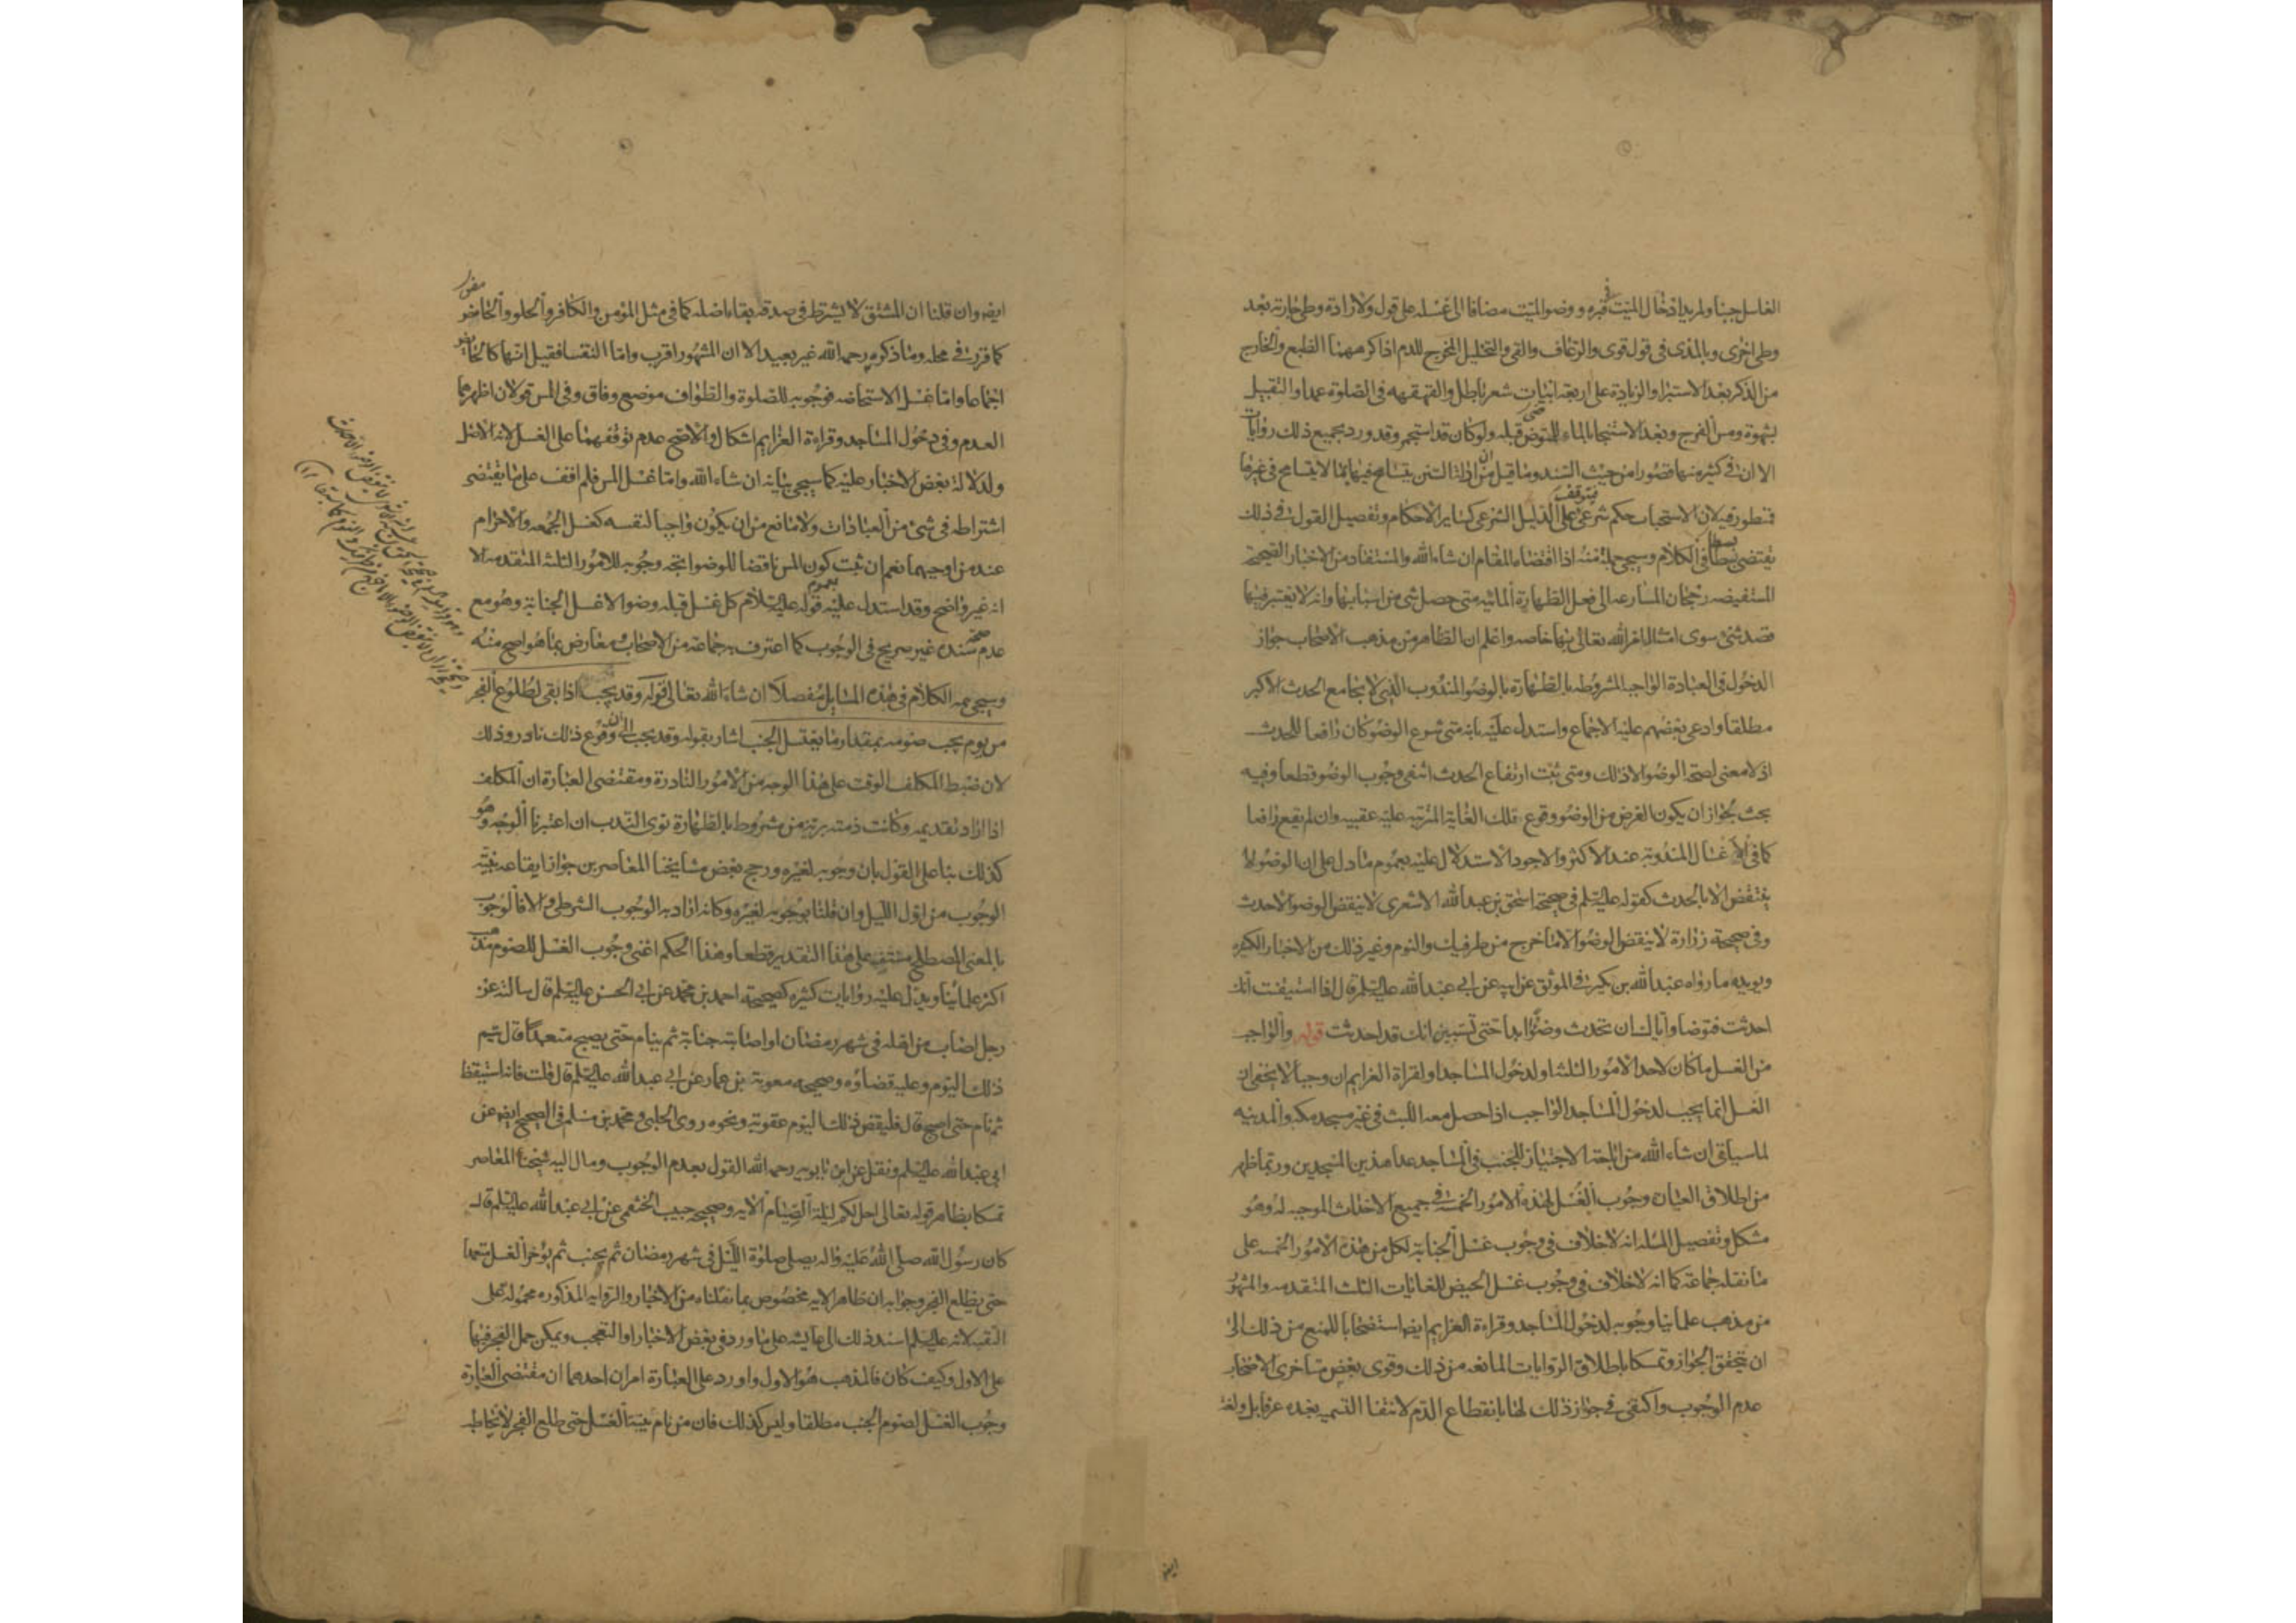 الغاسل جنبا ولمريد ادخال الميت قبره ووضوء الميت مضافا الى غسله على قول ولارادة وطى جاريته بعد
وطى اخرى وبالمذى فى قول قوى والرعاف والقى والتخليل المخرج للدم اذا كرههما الطبع والخارج
من الذكر بعد الاستبراء والزيادة على اربعة ابيات شعر باطل والقهقهه فى الصلوة عمدا والتقبيل
بشهوة ومس الفرج وبعد الاستنجاء بالماء للمتوضى قبله ولو كان قد استجمر وقد ورد بجميع ذلك روايات
الا ان فى كثير منها قصورا من حيث السند وما قيل من ان ادلة السنن يتسامح فيها بما لا يتسامح فى غيرها
فمنظور فيه لان الاستحباب حكم شرعى يتوقف على الدليل الشرعى كساير الاحكام وتفصيل القول فى ذلك
يقتضى بسطا فى الكلام وسيجى جملة منه اذا اقتضاه المقام ان شاء الله والمستفاد من الاخبار الصحيحة
المستفيضه رجحان المسارعه الى فعل الطهارة المائيه متى حصل شى من اسبابها وانه لا يعتبر فيها
قصد شئ سوى امتثال امر الله تعالى بها خاصه واعلم ان الظاهر من مذهب الاصحاب جواز
الدخول فى العبادة الواجبه المشروطه بالطهارة بالوضوء المندوب الذى لا يجامع الحدث الاكبر
مطلقا وادعى بعضهم عليه الاجماع واستدل عليه بانه متى شرع الوضوء كان رافعا للحدث
اذ لا معنى لصحة الوضوء الا ذلك ومتى ثبت ارتفاع الحدث انتفى وجوب الوضوء قطعا وفيه
بحث لجواز ان يكون الغرض من الوضوء وقوع تلك الغاية المترتبه عليه عقيبه وان لم يقع رافعا
كما فى الاغسال المندوبة عند الاكثر والاجود الاستدلال عليه بعموم ما دل على ان الوضوء لا
ينتقض الا بالحدث كقوله عليه السلم فى صحيحة اسحق بن عبدالله الاشعرى لا ينقض الوضوء الا حدث
وفى صحيحة زرارة لا ينقض الوضوء الا ما خرج من طرفيك والنوم وغير ذلك من الاخبار الكثيره
ويويده ما رواه عبدالله بن بكير فى الموثق عن ابيه عن ابى عبدالله عليه السلم قال اذا استيقنت انك
احدثت فتوضا واياك ان تحدث وضوءا ابدا حتى تستيقن انك قد احدثت قوله والواجب
من الغسل ما كان لاحد الامور الثلثة او لدخول المساجد او لقراة العزايم ان وجبا لا يخفى ان
الغسل انما يجب لدخول المساجد الواجب اذا حصل معه اللبث فى غير مسجد مكه والمدينه
لما سياتى ان شاء الله من اباحة الاجتياز للجنب فى المساجد عدا هذين المسجدين وربما ظهر
من اطلاق العبارة وجوب الغسل لهذه الامور الخمسة فى جميع الاحداث الموجبه له وهو
مشكل وتفصيل المسله انه لا خلاف فى وجوب غسل الجنابة لكل من هذه الامور الخمسه على
ما نقله جماعة كما انه لا خلاف فى وجوب غسل الحيض للغايات الثلث المتقدمه والمشهور
من مذهب علمائنا وجوبه لدخول المساجد وقراءة العزايم ايضا استصحابا للمنع من ذلك الى
ان يتحقق الجواز وتمسكا باطلاق الروايات المانعه من ذلك وقوى بعض متاخرى الاصحاب
عدم الوجوب واكتفى فى جواز ذلك لها بانقطاع الدم لانتفاء التسميه بعده عرفا بل ولغة
ايضا وان قلنا ان المشتق لا يشترط فى صدقه بقاء اصله كما فى مثل المؤمن والكافر والحلو والحامض
كما قررت فى محله وما ذكره رحمه الله غير بعيد الا ان المشهور اقرب واما النفساء فقيل انها كالحايض
اجماعا واما غسل الاستحاضه فوجوبه للصلوة والطواف موضع وفاق وفى المس قولان اظهرهما
العدم وفى دخول المساجد وقراءة العزايم اشكال والاصح عدم توقفهما على الغسل لانه الاصل
ولدلالة بعض الاخبار عليه كما سيجى بيانه ان شاء الله واما غسل المس فلم اقف على ما يقتضى
اشتراطه فى شى من العبادات ولا مانع من ان يكون واجبا لنفسه كغسل الجمعه والاحرام
عند من اوجبهما نعم ان ثبت كون المس ناقضا للوضوء اتجه وجوبه للامور الثلثة المتقدمه الا
انه غير واضح وقد استدل عليه بعموم قوله عليه السلام كل غسل قبله وضوء الا غسل الجنابة وهو مع
عدم صحة سنده غير صريح فى الوجوب كما اعترف به جماعة من الاصحاب معارض بما هو اصح منه
وسيجى تمه الكلام فى هذه المسايل مفصلا ان شاء الله تعالى قوله وقد يجب اذا بقى لطلوع الفجر
من يوم يجب صومه بمقدار ما يغتسل الجنب اشار بقوله وقد يجب الى ان وقوع ذلك نادر وذلك
لان ضبط المكلف الوقت على هذا الوجه من الامور النادرة ومقتضى العبارة ان المكلف
اذا اراد تقديمه وكانت ذمته برية من مشروط بالطهارة نوى الندب ان اعتبرنا الوجه وهو
كذلك بناء على القول بان وجوبه لغيره ورجح بعض مشايخنا المعاصرين جواز ايقاعه بنية
الوجوب من اول الليل وان قلنا بوجوبه لغيره وكانه اراد به الوجوب الشرطى والا فالوجوب
بالمعنى المصطلح منتف على هذا التقدير قطعا وهذا الحكم اعنى وجوب الغسل للصوم مذهب
اكثر علمائنا ويدل عليه روايات كثيره كصحيحة احمد بن محمد عن ابى الحسن عليه السلم قال سالته عن
رجل اصاب من اهله فى شهر رمضان او اصابته جنابة ثم ينام حتى يصبح متعمدا قال يتم
ذلك اليوم وعليه قضاؤه وصحيحه معوية بن عمار عن ابى عبدالله عليه السلم قال قلت فانه استيقظ
ثم نام حتى اصبح قال فليقض ذلك اليوم عقوبة ونحوه روى الحلبى ومحمد بن مسلم فى الصحيح ايضا عن
ابى عبدالله عليه السلم ونقل عن ابن بابويه رحمه الله القول بعدم الوجوب ومال اليه شيخنا المعاصر
تمسكا بظاهر قوله تعالى احل لكم ليلة الصيام الايه وصحيحه حبيب الخثعمى عن ابى عبدالله عليه السلم قال
كان رسول الله صلى الله عليه واله يصلى صلوة الليل فى شهر رمضان ثم يجنب ثم يؤخر الغسل متعمدا
حتى يطلع الفجر وجوابه ان ظاهر الايه مخصوص بما نقلناه من الاخبار والروايه المذكوره محموله على
التقيه لانه عليه السلم اسند ذلك الى عايشه على ما ورد فى بعض الاخبار او التعجب ويمكن حمل الفجر فيها
على الاول وكيف كان فالمذهب هو الاول واورد على العبارة امران احدهما ان مقتضى العبارة
وجوب الغسل لصوم الجنب مطلقا وليس كذلك فان من نام بنية الغسل حتى طلع الفجر لا يخاطب
ايضا